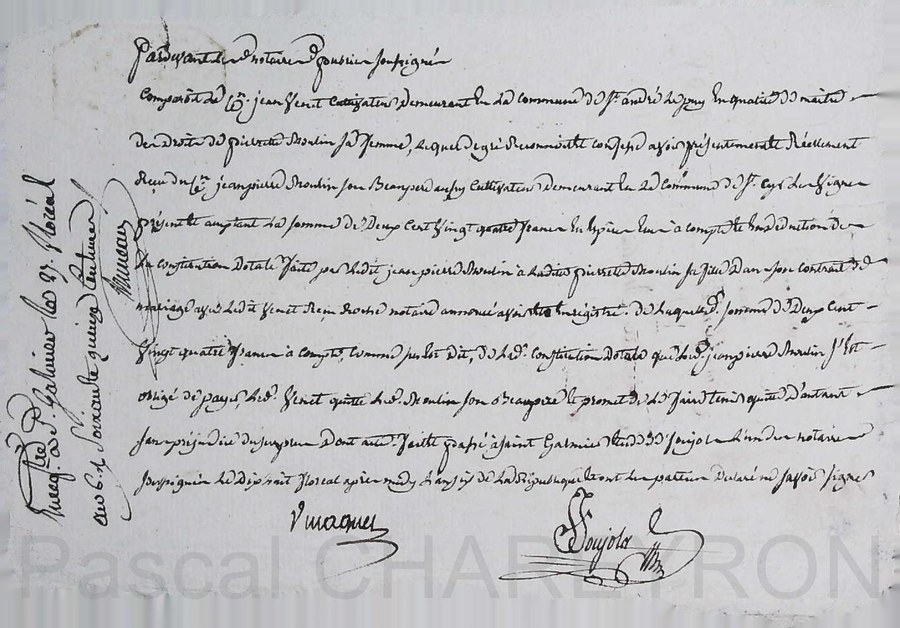 Pardevant les notaires publics soussignés
Comparoit le Cen. jean Venet Cultivateur demeurant en la commune de St. andré le puy en qualité de maitre
des droits de pierrette Moulin sa femme, lequel de gré Reconnoit et confesse avoir présentement et Réellement
Receu du Cen. jean pierre Moulin son Beaupere aussy Cultivateur demeurant en la Commune de St. Cyr les Vignes
présent et acceptant la somme de Deux Cent Vingt quatre francs en Espèce à compte et en déduction de
la constitution Dotale faite par ledit jean pierre Moulin à ladite pierrette Moulin sa fille dans son contrat de
mariage avec ledit Venet Reçu notaire annoncé avoir été Enregistré. de laquelle d. somme de Deux Cent
Vingt quatre francs à compte, comme sus est dit, de lad. constitution Dotale que led. jean pierre Moulin s'est
obligé de payer, led. Venet quitte led. Moulin son Beaupere et promet de l'en faire tenir quitte d'autant
sans préjudice du surplus Dont acte. fait et passé à saint Galmier Etude de Soujola l'un des notaires
soussignés le Dix huit floreal après midy l'an six de la République et ont les parties Déclaré ne savoir signer
Vmaguet
Soujola
Enreg. à St. Galmier le 27 floréal
an 6. R. Soixante quinze Centimes
Pascal CHAREYRON